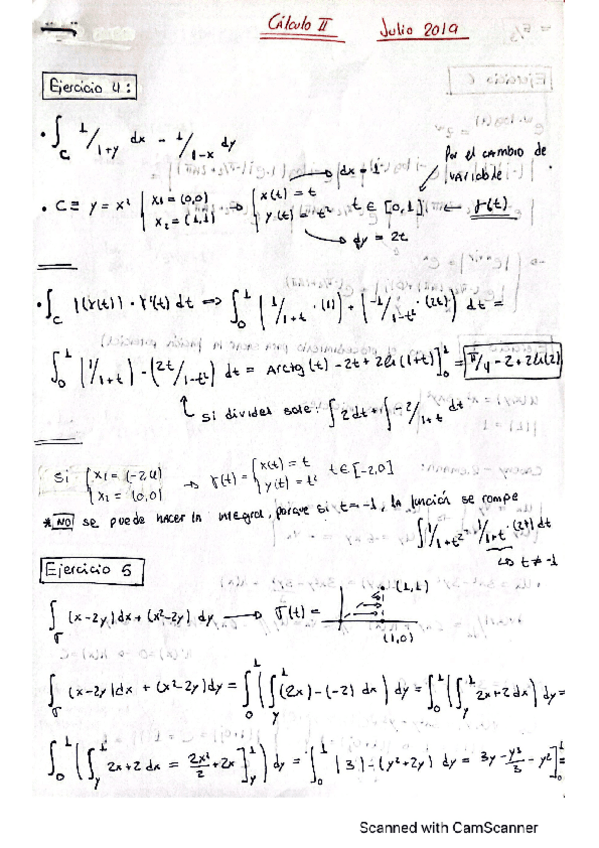 Cálculo II Julio 2019
Ejercicio 4:
• ∫_C 1/1+y dx - 1/1-x dy
Por el cambio de variable
• C ≡ y = x² { x₁ = (0,0) x₂ = (1,1) → { x(t) = t y(t) = t² t ∈ [0,1] ← γ(t)
→ dx = 1
→ dy = 2t
• ∫_C f(γ(t)) · γ'(t) dt ⇒ ∫₀¹ (1/1+t · (1)) + (-1/1-t² · (2t)) dt =
∫₀¹ (1/1+t) - (2t/1-t²) dt = Arctg(t) - 2t + 2ln(1+t)]₀¹ = π/4 - 2 + 2ln(2)
↳ si divides sale: ∫ 2 dt + ∫ -2/1+t dt
Si { x₁ = (-2,4) x₂ = (0,0) → γ(t) = { x(t) = t y(t) = t² t ∈ [-2,0]
* NO se puede hacer la integral, porque si t = -1, la función se rompe
∫ 1/1+t² - 1/1+t · (2t) dt
↳ t ≠ -1
Ejercicio 5
∫_σ (x-2y) dx + (x²-2y) dy → σ(t) =
(1,1)
(1,0)
∫_σ (x-2y) dx + (x²-2y) dy = ∫₀¹ (∫_y¹ (2x) - (-2) dx) dy = ∫₀¹ (∫_y¹ 2x+2 dx) dy =
∫₀¹ (∫_y¹ 2x+2 dx = 2x²/2 + 2x]_y¹) dy = ∫₀¹ (3) - (y²+2y) dy = 3y - y³/3 - y²]₀¹ =
Scanned with CamScanner